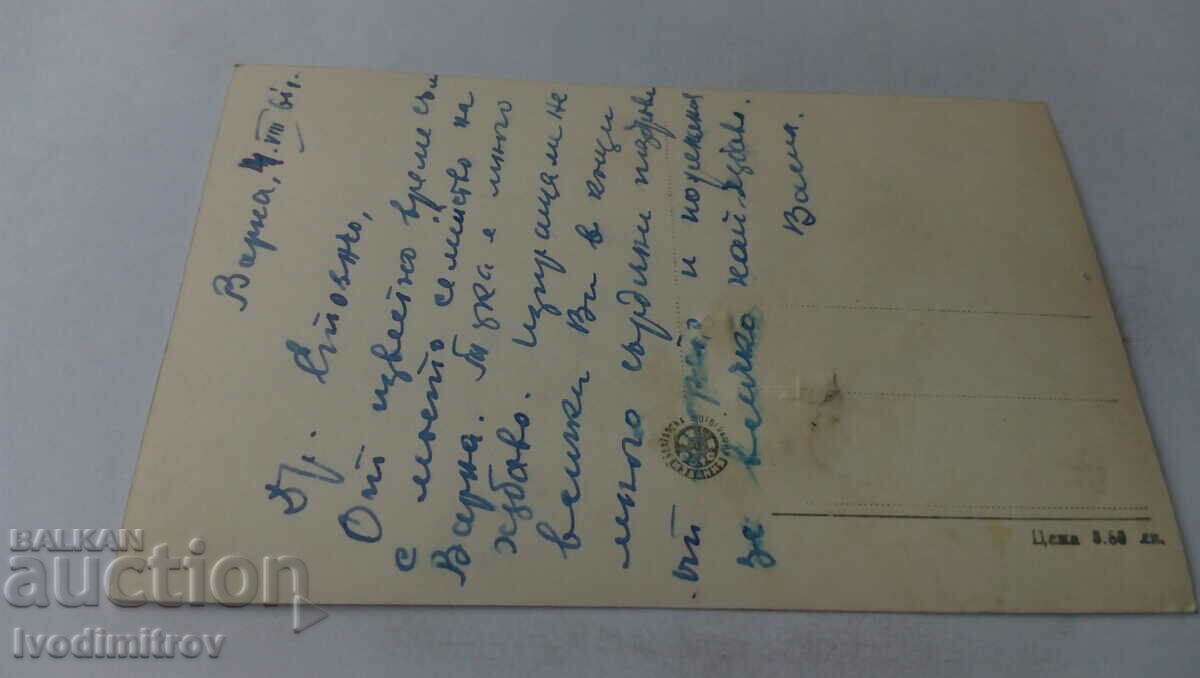 Варна, 4.VIII 61 г.
Др. Стоянчо,
От известно време съм
с моето семейство на
Варна. Тука е много
хубаво. Изпращаме
всички Ви в къщи
много сърдечни поздрави
от море, и пожелания
за всичко най-хубаво.
Ваш.
БЪЛГАРСКА ФОТОГРАФИЯ
Цена 0.80 лв.
BALKAN
auction
Ivodimitrov